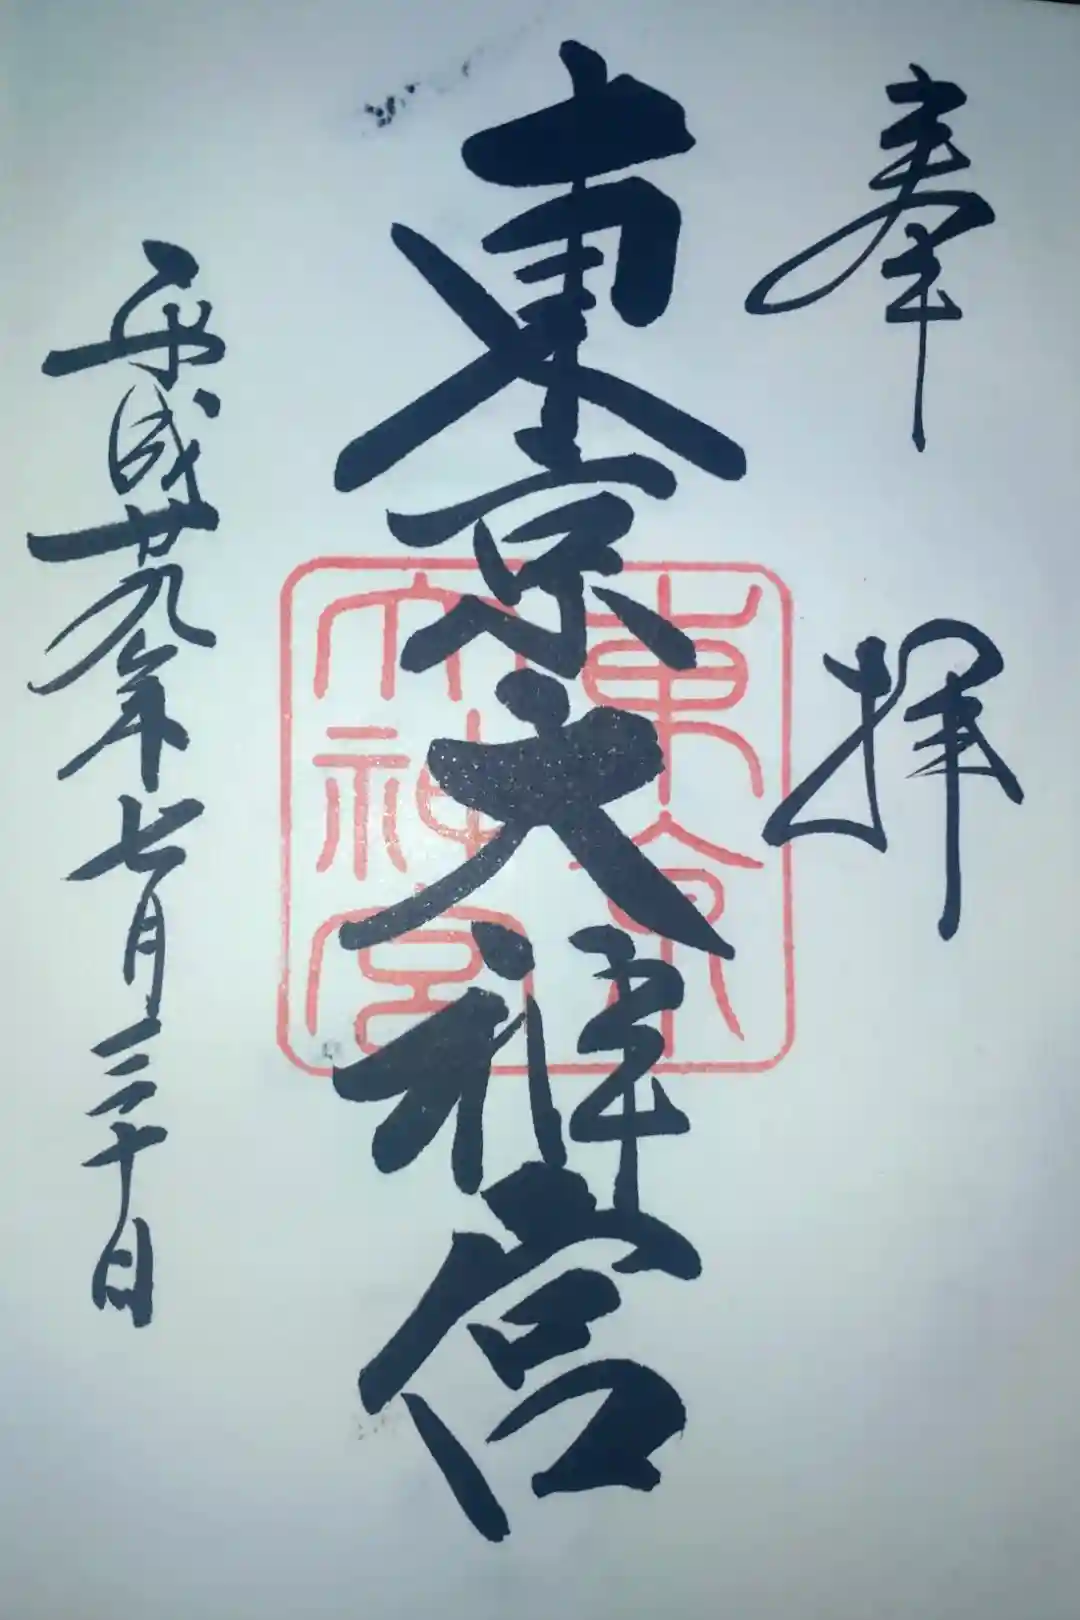 奉拝
東京大神宮
東京
大神宮
平成廿九年七月三十日